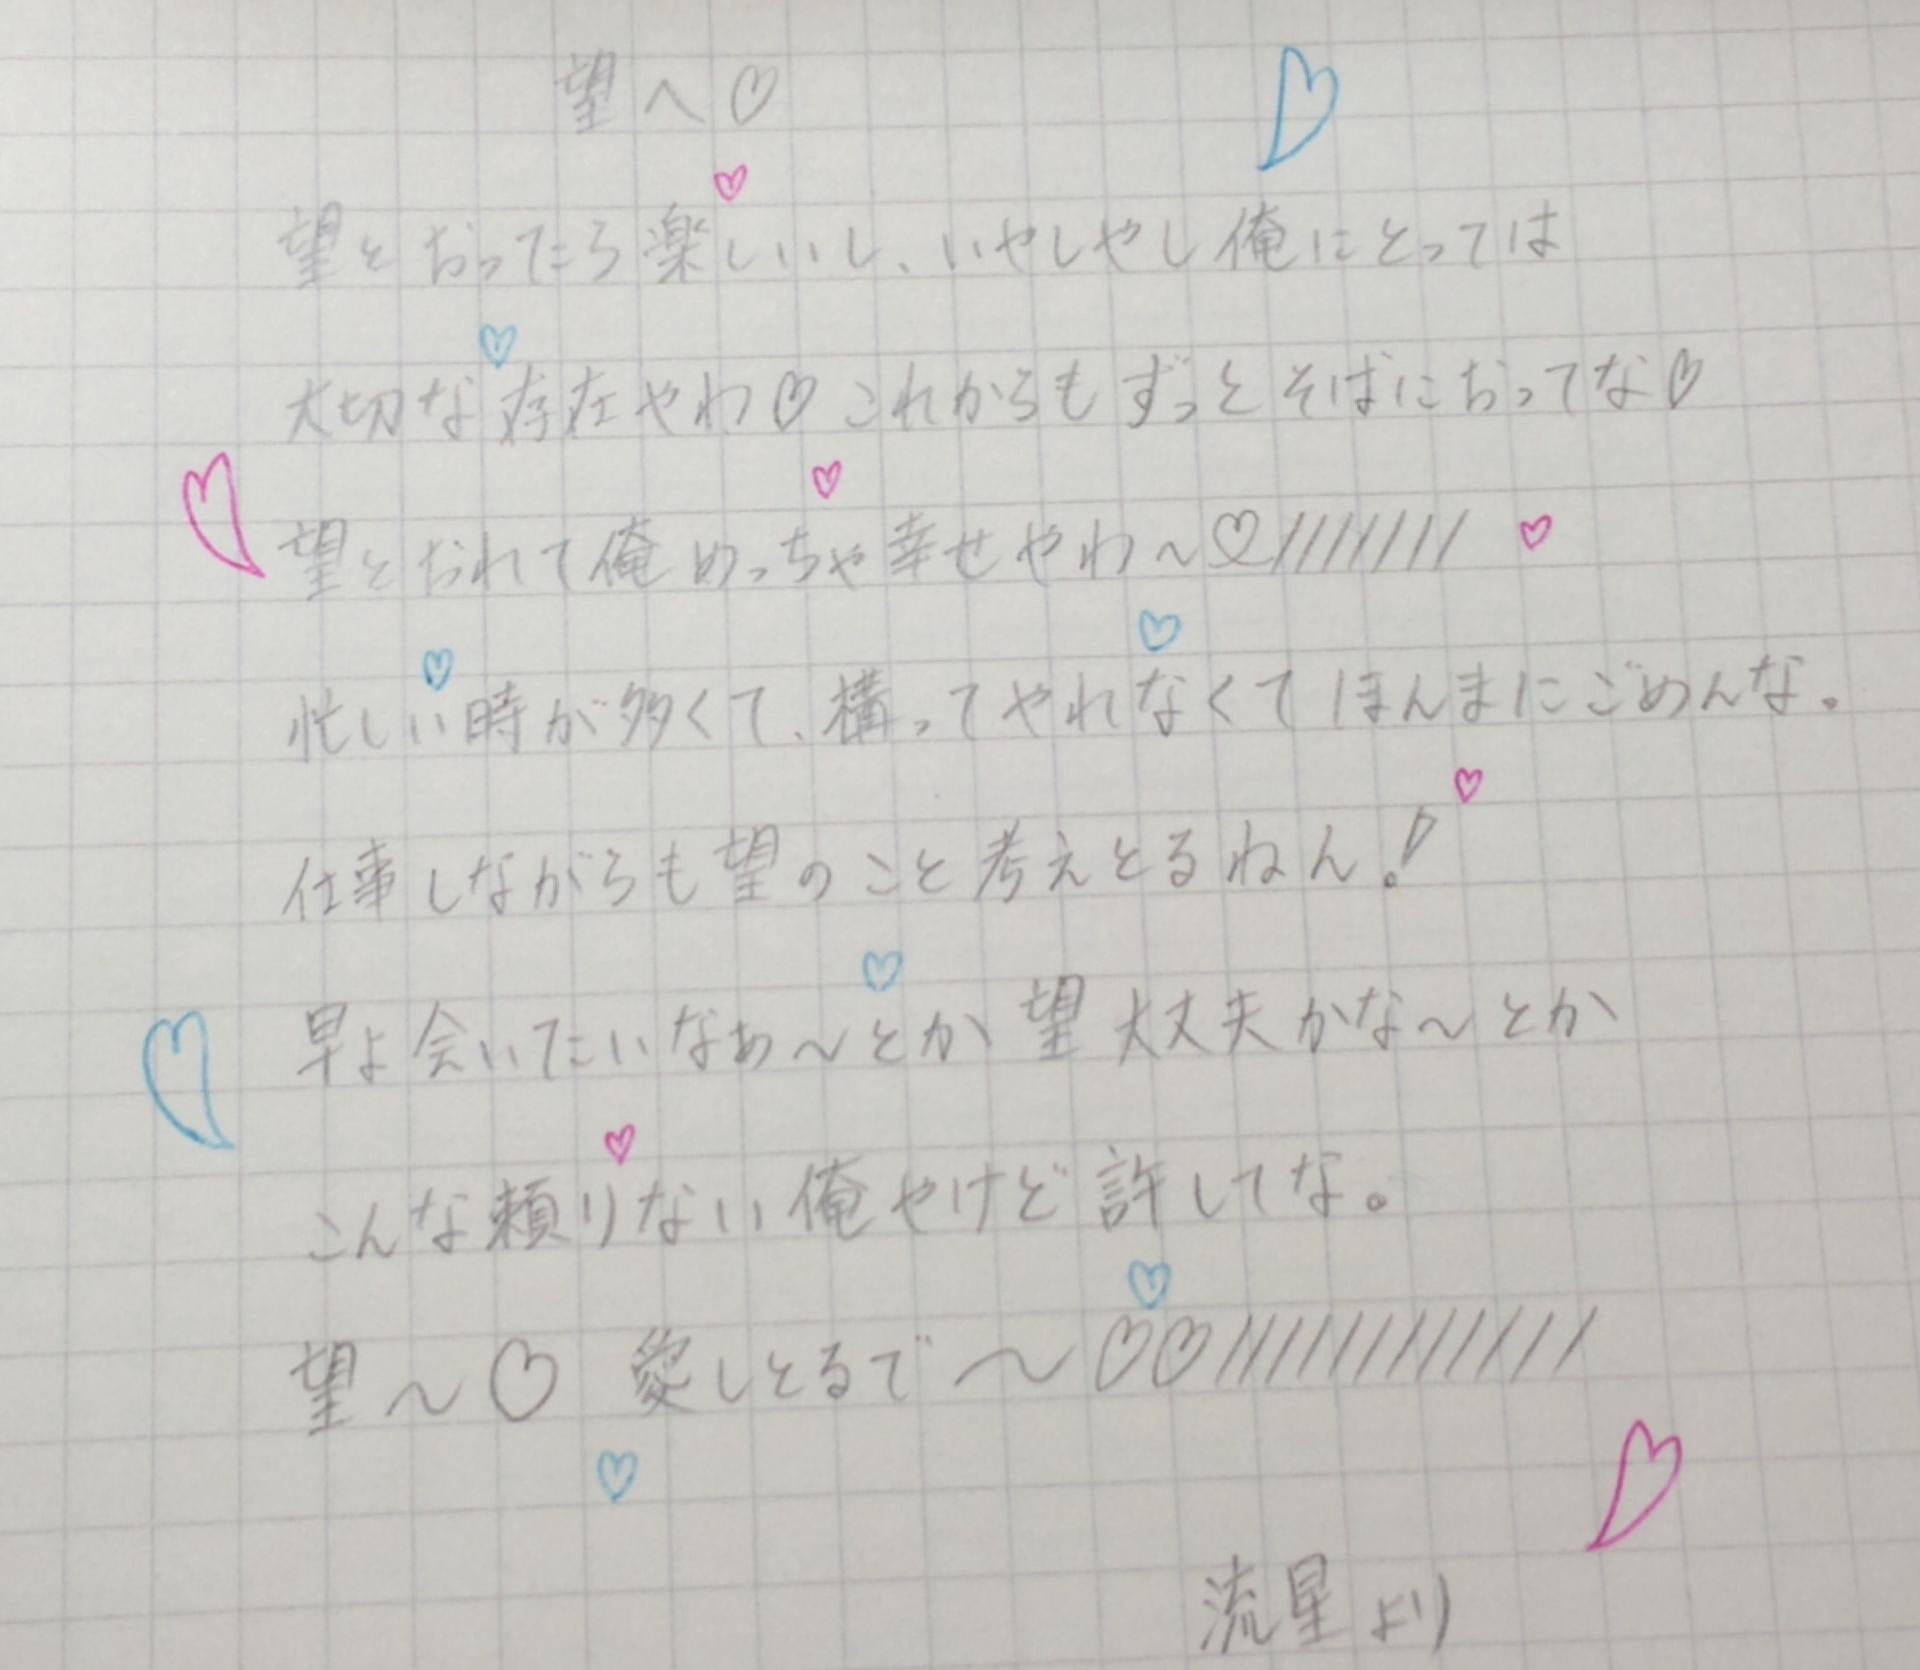 望へ♡
望とおったら楽しいし、いやしやし俺にとっては
大切な存在やわ♡これからもずっとそばにおってな♡
望とおれて俺めっちゃ幸せやわ～♡////////
忙しい時が多くて、構ってやれなくてほんまにごめんな。
仕事しながらも望のこと考えとるねん!
早よ会いたいなぁ～とか望大丈夫かな～とか
こんな頼りない俺やけど許してな。
望～♡ 愛しとるで～♡♡/////////////
流星より